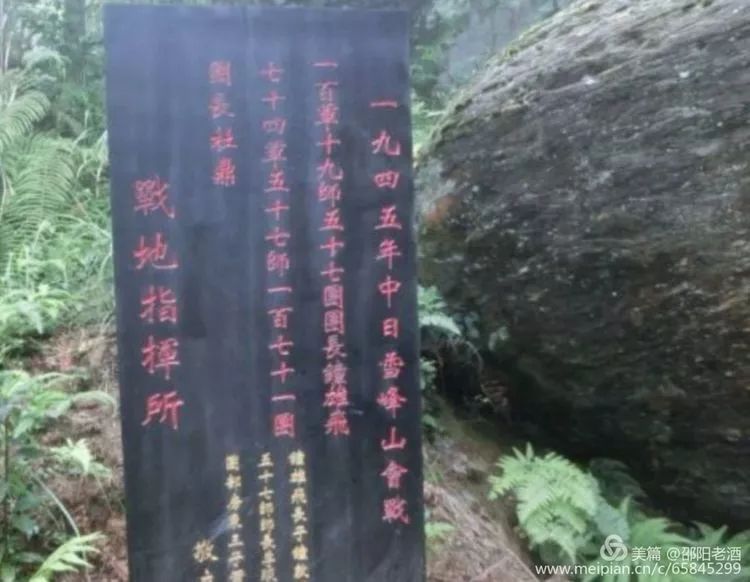 一九四五年中日雪峰山會戰
一百軍十九師五十七團團長鍾雄飛
七十四軍五十七師一百七十一團
團長杜鼎
戰地指揮所
鍾雄飛長子鍾
五十七師師長
團部
敬
美篇 @邵阳老酒
www.meipian.cn/c/65845299